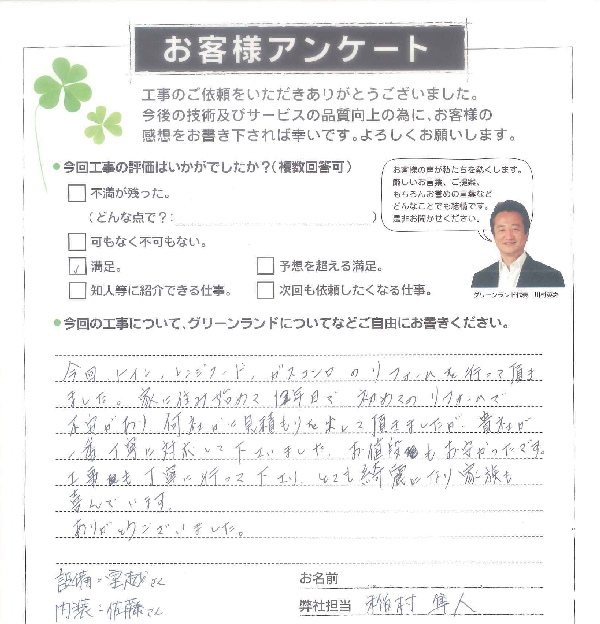 お客様アンケート
工事のご依頼をいただきありがとうございました。
今後の技術及びサービスの品質向上の為に、お客様の
感想をお書き下されば幸いです。よろしくお願いします。
今回工事の評価はいかがでしたか?(複数回答可)
不満が残った。
(どんな点で?: )
可もなく不可もない。
満足。
予想を超える満足。
知人等に紹介できる仕事。
次回も依頼したくなる仕事。
お客様の声が私たちを熱くします。
厳しいお言葉、ご提案、
もちろんお誉めの言葉など
どんなことでも結構です。
是非お聞かせください。
グリーンランド代表
今回の工事について、グリーンランドについてなどご自由にお書きください。
今回、トイレ、レンジフード、ガスコンロのリフォームを行って頂き
ました。家に住み始めて 年目で 初めてのリフォームで
不安があり 何社かに見積もりを出して頂きましたが、貴社が
一番丁寧に対応して下さいましたし、お値段もお安かったです。
工事も丁寧に行って下さり、とても綺麗になり家族も
喜んでいます。
ありがとうございました。
設備= さん
内装=佐藤さん
お名前
弊社担当 稲村 隼人